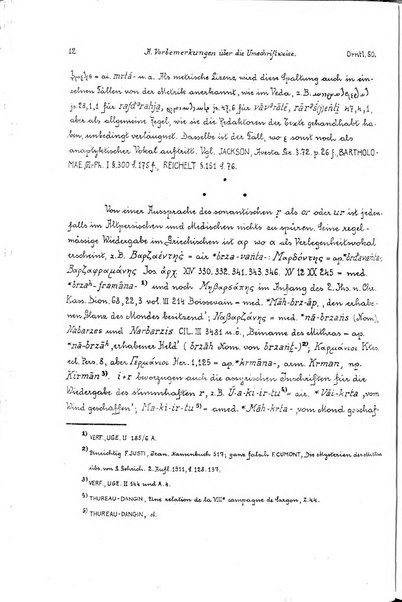 12 A. Vorbemerkungen über die Umschriftweise. Orntl. 50.
= ai. mrtá- u. a. Als metrische Lizenz, wird diese Spaltung auch in ein-
zelnen Fällen von der Metrik anerkannt, wie im Veda, z. B.
jz. 28,1,1 für jz. 47,6 für 47,4,1,
aber als allgemeine Regel, wie sie die Redaktoren der Texte gehandhabt ha-
ben, unbedingt verläugnet. Dasselbe ist der Fall, wo ε sonst noch als
anaptyktischer Vokal auftritt. Vgl. JACKSON, Avesta Gr. §.72. p. 26 f., BARTHOLO-
MAE I §.300 f. 175 f., REICHELT §. 151 f. 76.
Von einer Aussprache des sonantischen r als or oder ur ist jeden-
falls im Altpersischen und Medischen nichts zu spüren. Seine regel-
mässige Wiedergabe im Griechischen ist αρ wo α als Verlegenheitsvokal
erscheint, z. B. Βαρζαέντης = ai. *brza-vanta-: Μαρδόντης = ap. *brdavanta-;
Βαρζαφραμάνης Jos. ἀρχ. XIV 330. 332. 341. 343. 346. XV 12 XX 245 = med.
*brzah-framāna- 1) und noch Μηβαρσάπης im Anfang des 2. Jhs. n. Chr.
Kas. Dion. 68, 22, 3 vol. III 214 Boissevain = med. *Māh-brz-āp, den erhabe-
nen Glanz des Mondes besitzend'; Ναβαρζάνης = *nā-brzans (Nom.),
Nabarzes und Narbarzis CIL. III 3481 u. ö., Beiname des Mithras = ap.
*nā-brzāh 'erhabener Held' (brzāh Nom. von brzant-) 2), Καρμάνιοι Ktes.
ecl. Pers. 8, aber Γερμάνιοι Her. 1,125 = ap. *krmāna-, arm. Krman, np.
Kirmān 3). i + r bevorzugen auch die assyrischen Inschriften für die
Wiedergabe des stimmhaften r, z. B. Ú-a-ki-ir-tu 4) = air. *Vāi-krta 'vom
Wind geschaffen'; Ma-ki-ir-tu 5) = amed. *Māh-krta- 'vom Mond geschaf-
1) VERF., UGE. II 185/6 A.
2) Einsichtig F. JUSTI, Iran. Namenbuch 517; ganz falsch F. CUMONT, Die Mysterien des Mithra
übs. von G. Gehrich. 2. Aufl. 1911, s. 128. 137.
3) VERF., UGE. II 144 und A. 4.
4) THUREAU-DANGIN, Une relation de la VIIIe campagne de Sargon, Z. 44.
5) THUREAU-DANGIN, cl.